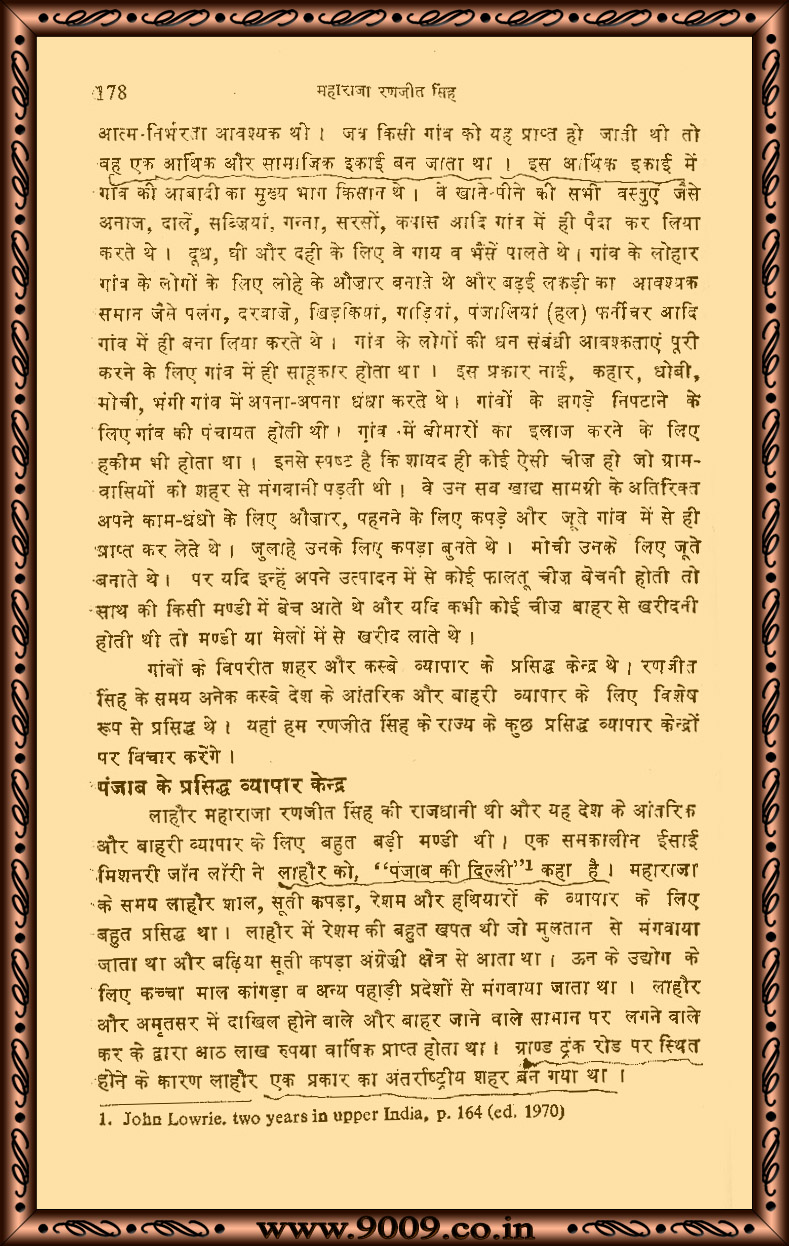 178 महाराजा रणजीत सिंह
आत्म-निर्भरता आवश्यक थी । जब किसी गांव को यह प्राप्त हो जाती थी तो
वह एक आर्थिक और सामाजिक इकाई बन जाता था । इस आर्थिक इकाई में
गाँव की आबादी का मुख्य भाग किसान थे । वे खाने-पीने की सभी वस्तुएं जैसे
अनाज, दालें, सब्जियां, गन्ना, सरसों, कपास आदि गांव में ही पैदा कर लिया
करते थे । दूध, घी और दही के लिए वे गाय व भैंसें पालते थे । गांव के लोहार
गांव के लोगों के लिए लोहे के औज़ार बनाते थे और बढ़ई लकड़ी का आवश्यक
समान जैसे पलंग, दरवाज़े, खिड़कियां, गाड़ियां, पंजालियां (हल) फर्नीचर आदि
गांव में ही बना लिया करते थे । गांव के लोगों की धन संबंधी आवश्कताएं पूरी
करने के लिए गांव में ही साहूकार होता था । इस प्रकार नाई, कहार, धोबी,
मोची, भंगी गांव में अपना-अपना धंधा करते थे । गांवों के झगड़े निपटाने के
लिए गांव की पंचायत होती थी । गांव में बीमारों का इलाज करने के लिए
हकीम भी होता था । इनसे स्पष्ट है कि शायद ही कोई ऐसी चीज़ हो जो ग्राम-
वासियों को शहर से मंगवानी पड़ती थी । वे उन सब खाद्य सामग्री के अतिरिक्त
अपने काम-धंधो के लिए औज़ार, पहनने के लिए कपड़े और जूते गांव में से ही
प्राप्त कर लेते थे । जुलाहे उनके लिए कपड़ा बुनते थे । मोची उनके लिए जूते
बनाते थे । पर यदि इन्हें अपने उत्पादन में से कोई फालतू चीज़ बेचनी होती तो
साथ की किसी मण्डी में बेच आते थे और यदि कभी कोई चीज़ बाहर से खरीदनी
होती थी तो मण्डी या मेलों में से खरीद लाते थे ।
गांवों के विपरीत शहर और कस्बे व्यापार के प्रसिद्ध केन्द्र थे । रणजीत
सिंह के समय अनेक कस्बे देश के आंतरिक और बाहरी व्यापार के लिए विशेष
रूप से प्रसिद्ध थे । यहां हम रणजीत सिंह के राज्य के कुछ प्रसिद्ध व्यापार केन्द्रों
पर विचार करेंगे ।
पंजाब के प्रसिद्ध व्यापार केन्द्र
लाहौर महाराजा रणजीत सिंह की राजधानी थी और यह देश के आंतरिक
और बाहरी व्यापार के लिए बहुत बड़ी मण्डी थी । एक समकालीन ईसाई
मिशनरी जॉन लॉरी ने लाहौर को, “पंजाब की दिल्ली”1 कहा है । महाराजा
के समय लाहौर शाल, सूती कपड़ा, रेशम और हथियारों के व्यापार के लिए
बहुत प्रसिद्ध था । लाहौर में रेशम की बहुत खपत थी जो मुलतान से मंगवाया
जाता था और बढ़िया सूती कपड़ा अंग्रेज़ी क्षेत्र से आता था । ऊन के उद्योग के
लिए कच्चा माल कांगड़ा व अन्य पहाड़ी प्रदेशों से मंगवाया जाता था । लाहौर
और अमृतसर में दाखिल होने वाले और बाहर जाने वाले सामान पर लगने वाले
कर के द्वारा आठ लाख रुपया वार्षिक प्राप्त होता था । ग्राण्ड ट्रंक रोड पर स्थित
होने के कारण लाहौर एक प्रकार का अंतर्राष्ट्रीय शहर बन गया था ।
1. John Lowrie. two years in upper India, p. 164 (ed. 1970)
www.9009.co.in